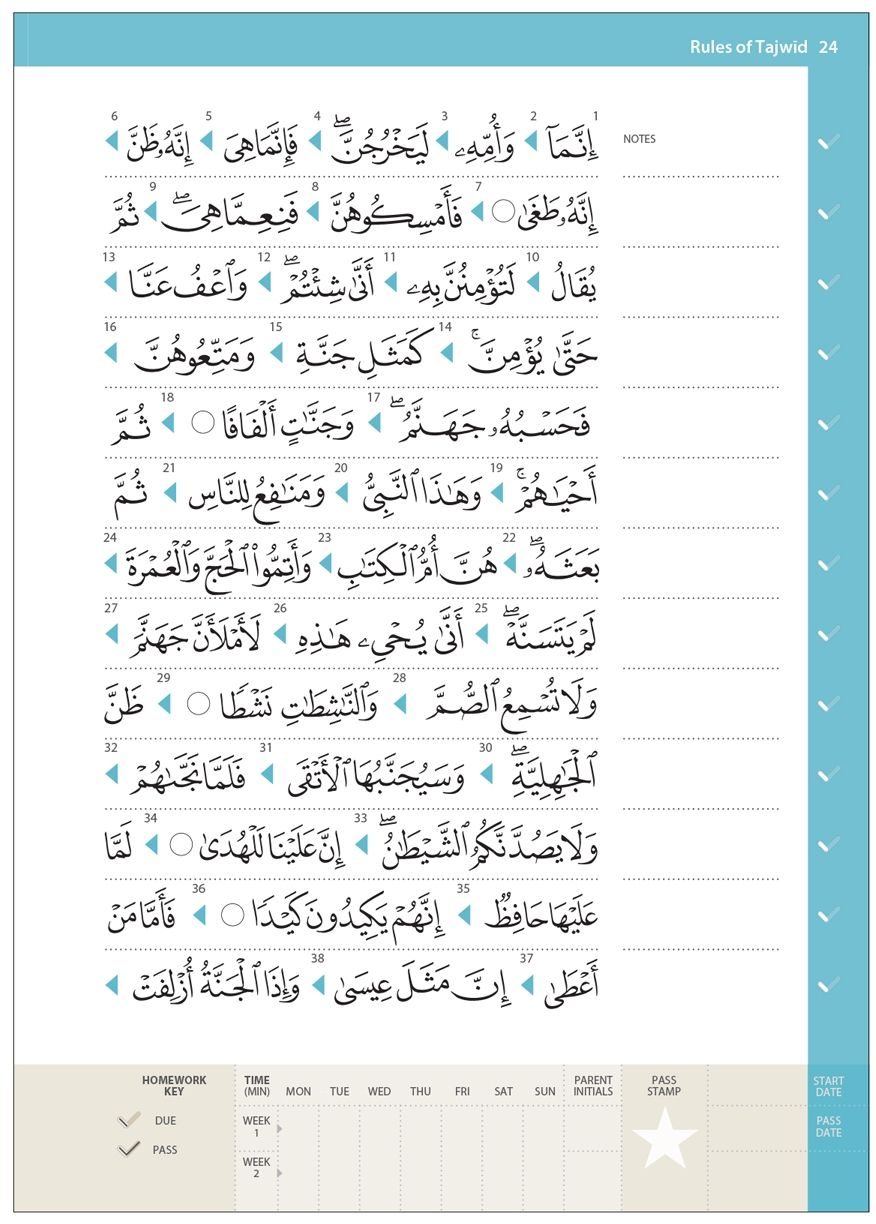 Rules of Tajwīd 24
1 إِنَّمَآ 2 وَأُمِّهِۦ 3 لَيَخْرُجُنَّۖ 4 فَإِنَّمَا هِىَ 5 إِنَّهُۥ ظَنَّ 6
NOTES
إِنَّهُۥ طَغَىٰ ○ 7 فَأَمْسِكُوهُنَّ 8 فَنِعِمَّا هِىَۖ 9 ثُمَّ
يُقَالُ 10 لَتُؤْمِنُنَّ بِهِۦ 11 أَنَّىٰ شِئْتُمْۖ 12 وَٱعْفُ عَنَّا 13
حَتَّىٰ يُؤْمِنَّۚ 14 كَمَثَلِ جَنَّةِ 15 وَمَتِّعُوهُنَّ 16
فَحَسْبُهُۥ جَهَنَّمُۖ 17 وَجَنَّٰتٍ أَلْفَافًا ○ 18 ثُمَّ
أَحْيَٰهُمْۚ 19 وَهَٰذَا ٱلنَّبِىُّ 20 وَمَنَٰفِعُ لِلنَّاسِ 21 ثُمَّ
بَعَثَهُۥۖ 22 هُنَّ أُمُّ ٱلْكِتَٰبِ 23 وَأَتِمُّوا۟ ٱلْحَجَّ وَٱلْعُمْرَةَ 24
لَمْ يَتَسَنَّهْۖ 25 أَنَّىٰ يُحْىِۦ هَٰذِهِ 26 لَأَمْلَأَنَّ جَهَنَّمَ 27
وَلَا تُسْمِعُ ٱلصُّمَّ 28 وَٱلنَّٰشِطَٰتِ نَشْطًا ○ 29 ظَنَّ
ٱلْجَٰهِلِيَّةِۖ 30 وَسَيُجَنَّبُهَا ٱلْأَتْقَى 31 فَلَمَّا نَجَّىٰهُمْ 32
وَلَا يَصُدَّنَّكُمُ ٱلشَّيْطَٰنُۖ 33 إِنَّ عَلَيْنَا لَلْهُدَىٰ ○ 34 لَّمَّا
عَلَيْهَا حَافِظٌ 35 إِنَّهُمْ يَكِيدُونَ كَيْدًا ○ 36 فَأَمَّا مَنْ
أَعْطَىٰ 37 إِنَّ مَثَلَ عِيسَىٰ 38 وَإِذَا ٱلْجَنَّةُ أُزْلِفَتْ
HOMEWORK KEY
DUE
PASS
TIME (MIN) MON TUE WED THU FRI SAT SUN PARENT INITIALS PASS STAMP START DATE
WEEK 1
PASS DATE
WEEK 2